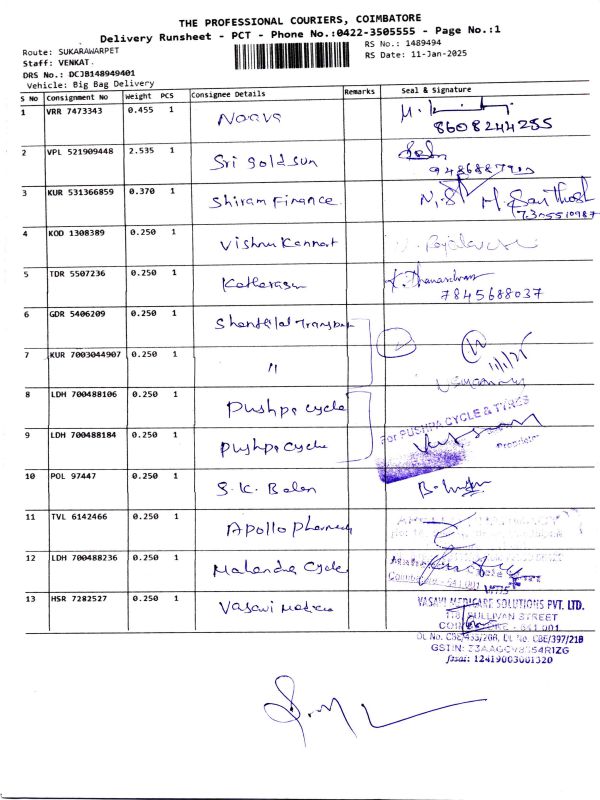 THE PROFESSIONAL COURIERS, COIMBATORE
Delivery Runsheet - PCT - Phone No.:0422-3505555 - Page No.:1
Route: SUKARAWARPET
RS No.: 1489494
Staff: VENKAT
RS Date: 11-Jan-2025
DRS No.: DCJB148949401
Vehicle: Big Bag Delivery
S No Consignment No Weight PCS Consignee Details Remarks Seal & Signature
1 VRR 7473343 0.455 1
8608244255
2 VPL 521909448 2.535 1 Sri gold sun
3 KUR 531366859 0.370 1 Shiram Finance
7305510987
4 KOD 1308389 0.250 1
5 TDR 5507236 0.250 1
7845688037
6 GDR 5406209 0.250 1 Shantilal Transport
7 KUR 7003044907 0.250 1 "
11/1/25
8 LDH 700488106 0.250 1 Pushpa cycle
For PUSHPA CYCLE & TYRES
9 LDH 700488184 0.250 1 Pushpa cycle
Proprietor
10 POL 97447 0.250 1 S.K. Balan
11 TVL 6142466 0.250 1 Apollo pharmacy
12 LDH 700488236 0.250 1 Mahendra Cycle
Coimbatore - 641 001
13 HSR 7282527 0.250 1 Vasavi
VASAVI MEDICARE SOLUTIONS PVT. LTD.
SULLIVAN STREET
fssai: 12419003001320